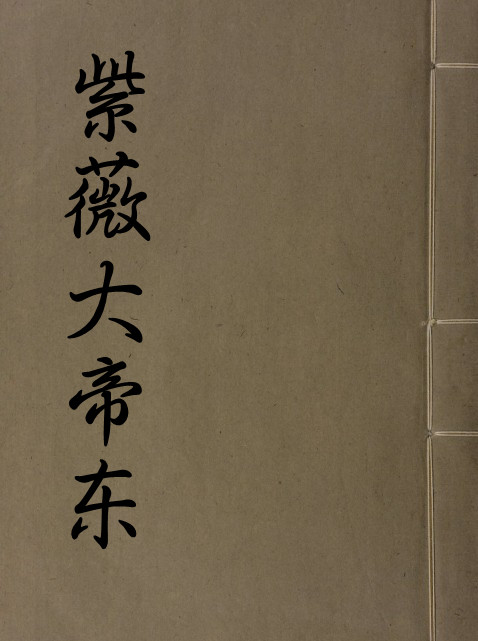 紫薇大帝东